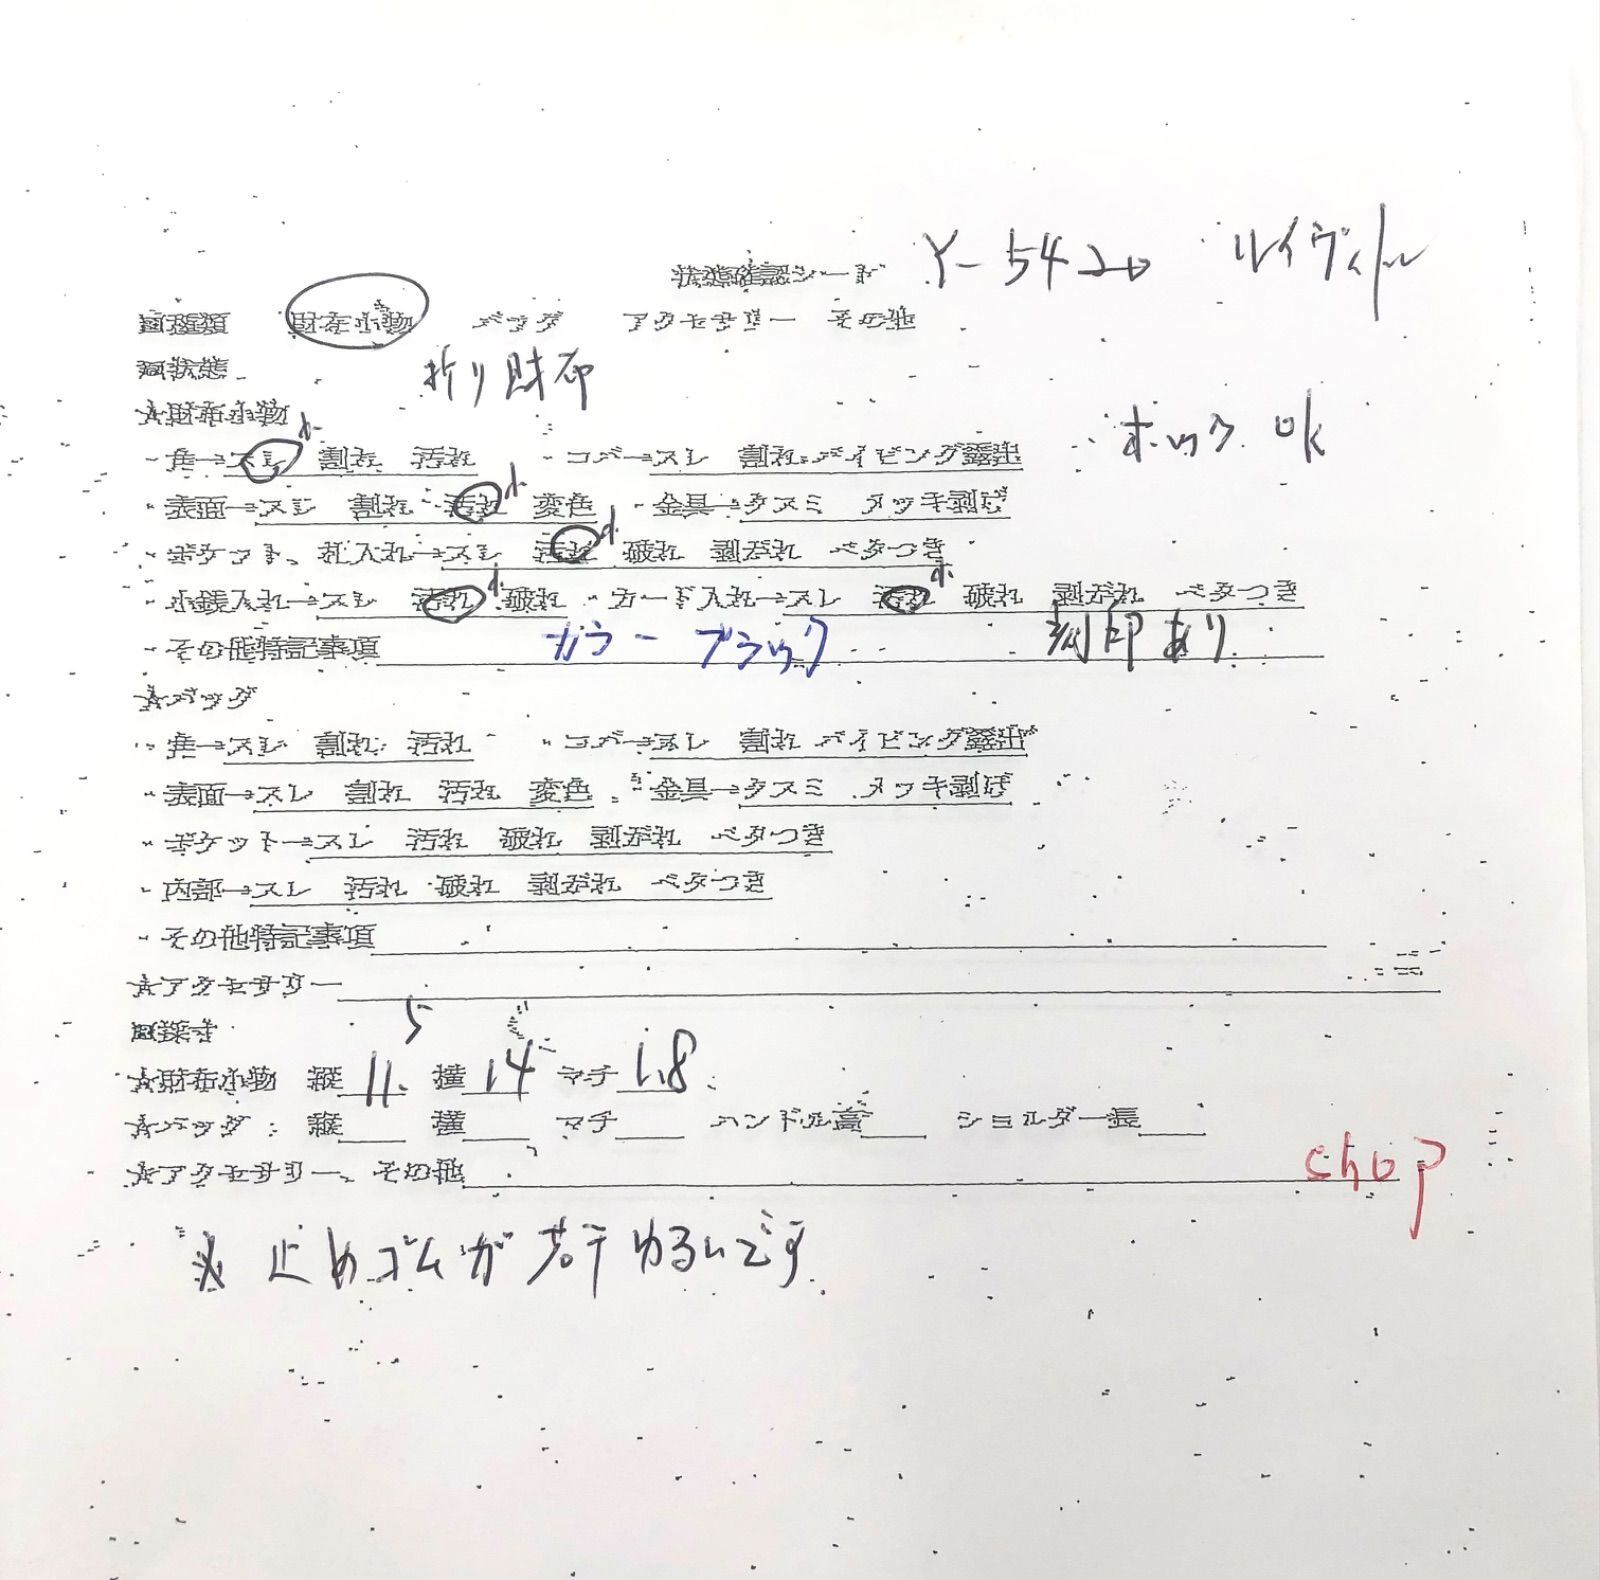 状態確認シート Y-5420 ルイヴィトン
□種類 財布小物 バッグ アクセサリー その他
□状態 折り財布
☆財布小物
・角→スレ 小 割れ 汚れ ・コバ→スレ 割れ パイピング露出 ・ホック OK
・表面→スレ 割れ 汚れ 小 変色 ・金具→クスミ メッキ剥げ
・ポケット、札入れ→スレ 汚れ 小 破れ 剥がれ ベタつき
・小銭入れ→スレ 汚れ 小 破れ ・カード入れ→スレ 汚れ 小 破れ 剥がれ ベタつき
・その他特記事項 カラー ブラック 刻印あり
☆バッグ
・角→スレ 割れ 汚れ ・コバ→スレ 割れ パイピング露出
・表面→スレ 割れ 汚れ 変色 ・金具→クスミ メッキ剥げ
・ポケット→スレ 汚れ 破れ 剥がれ ベタつき
・内部→スレ 汚れ 破れ 剥がれ ベタつき
・その他特記事項
☆アクセサリー
□採寸
☆財布小物 縦 11.5 横 14 マチ 1.8
☆バッグ:縦 横 マチ ハンドル高 ショルダー長
☆アクセサリー、その他 shop
※ 止めゴムが若干ゆるいです